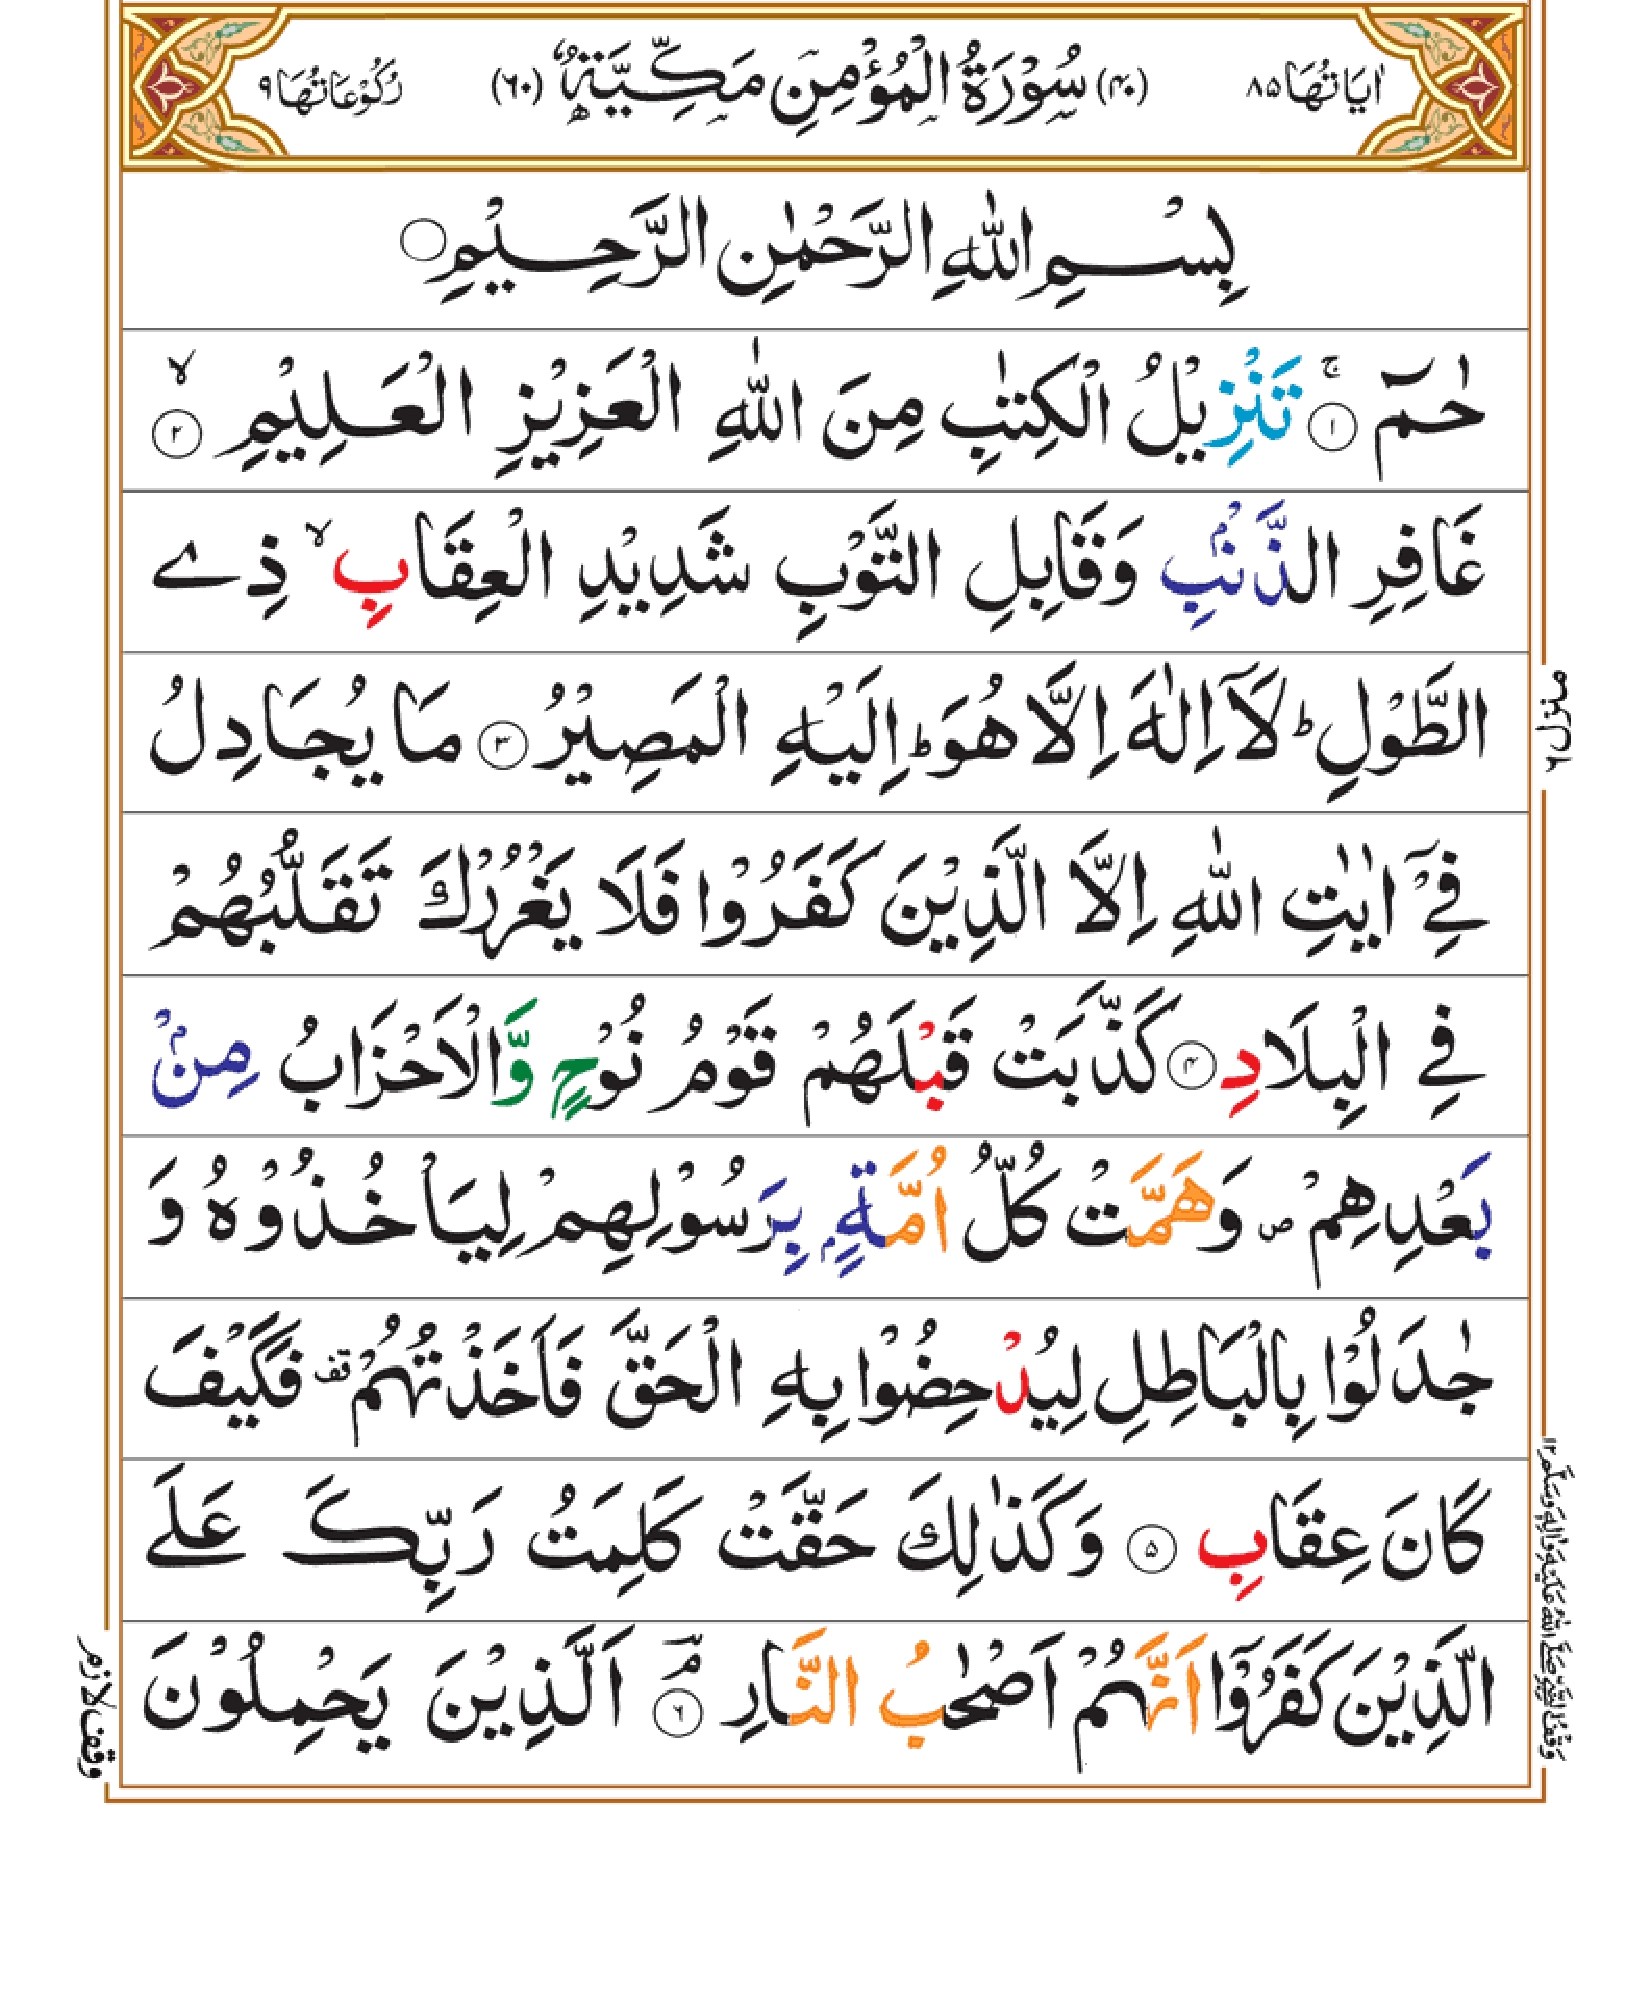 اٰيَاتُهَا ٨٥ (٤٠) سُوْرَةُ الْمُؤْمِنِ مَكِّيَّةٌ (٦٠) رُكُوْعَاتُهَا ٩
بِسْمِ اللّٰهِ الرَّحْمٰنِ الرَّحِيْمِ
حٰمٓ ۚ ١ تَنْزِيْلُ الْكِتٰبِ مِنَ اللّٰهِ الْعَزِيْزِ الْعَلِيْمِ ۙ ٢
غَافِرِ الذَّنْۢبِ وَقَابِلِ التَّوْبِ شَدِيْدِ الْعِقَابِ ۙ ذِے
الطَّوْلِ ؕ لَاۤ اِلٰهَ اِلَّا هُوَ ؕ اِلَيْهِ الْمَصِيْرُ ٣ مَا يُجَادِلُ
فِيْۤ اٰيٰتِ اللّٰهِ اِلَّا الَّذِيْنَ كَفَرُوْا فَلَا يَغْرُرْكَ تَقَلُّبُهُمْ
فِي الْبِلَادِ ٤ كَذَّبَتْ قَبْلَهُمْ قَوْمُ نُوْحٍ وَّالْاَحْزَابُ مِنْۢ
بَعْدِهِمْ ۪ وَهَمَّتْ كُلُّ اُمَّةٍۭ بِرَسُوْلِهِمْ لِيَاْخُذُوْهُ وَ
جٰدَلُوْا بِالْبَاطِلِ لِيُدْحِضُوْا بِهِ الْحَقَّ فَاَخَذْتُهُمْ قف فَكَيْفَ
كَانَ عِقَابِ ٥ وَكَذٰلِكَ حَقَّتْ كَلِمَتُ رَبِّكَ عَلَى
الَّذِيْنَ كَفَرُوْۤا اَنَّهُمْ اَصْحٰبُ النَّارِ ۘ ٦ اَلَّذِيْنَ يَحْمِلُوْنَ
منزل ٦
وقف النبي صلى الله عليه واله وسلم ١٢
وقف لازم